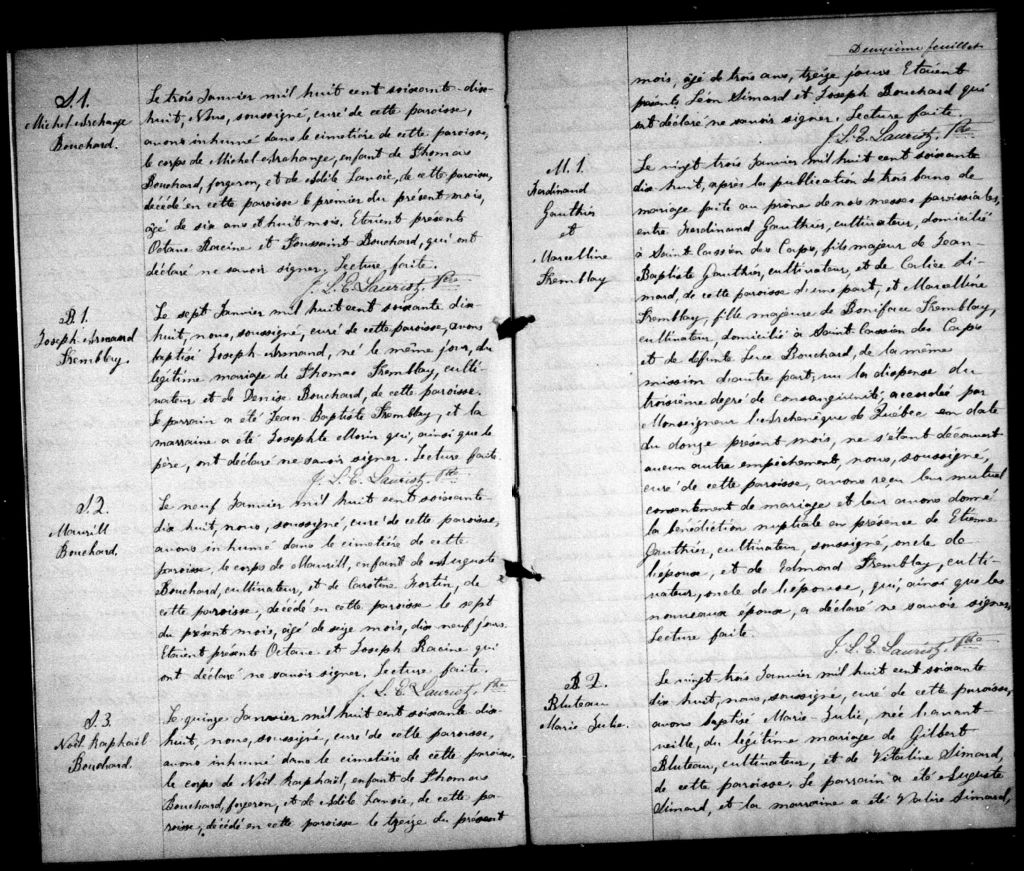 S. 1.
Michel Archange
Bouchard.
Le trois Janvier mil huit cent soixante-dix-
huit, Nous, soussigné, curé de cette paroisse,
avons inhumé dans le cimetière de cette paroisse,
le corps de Michel Archange, enfant de Thomas
Bouchard, forgeron, et de Adèle Lavoie, de cette paroisse,
décédé en cette paroisse le premier du présent mois,
âgé de six ans et huit mois. Etaient présents
Octave Racine et Toussaint Bouchard, qui ont
déclaré ne savoir signer, Lecture faite.
J. L. E. Lauriot, Ptre
B. 1.
Joseph Armand
Tremblay.
Le sept Janvier mil huit cent soixante dix-
huit, nous, soussigné, curé de cette paroisse, avons
baptisé Joseph-Armand, né le même jour, du
légitime mariage de Thomas Tremblay, culti-
vateur et de Denise Bouchard, de cette paroisse.
Le parrain a été Jean-Baptiste Tremblay, et la
marraine a été Josephte Morin qui, ainsi que le
père, ont déclaré ne savoir signer. Lecture faite.
J. L. E. Lauriot, Ptre
S. 2.
Maurill
Bouchard.
Le neuf Janvier mil huit cent soixante
dix huit, nous, soussigné, curé de cette paroisse,
avons inhumé dans le cimetière de cette
paroisse, le corps de Maurill, enfant de Auguste
Bouchard, cultivateur, et de Caroline Fortin, de
cette paroisse, décédé en cette paroisse le sept
du présent mois, âgé de seize mois, dix neuf jours.
Etaient présents Octave et Joseph Racine qui
ont déclaré ne savoir signer, Lecture faite.
J. L. E. Lauriot, Ptre
S. 3
Noël Raphaël
Bouchard.
Le quinze Janvier mil huit cent soixante dix-
huit, nous, soussigné, curé de cette paroisse,
avons inhumé dans le cimetière de cette paroisse,
le corps de Noël Raphaël, enfant de Thomas
Bouchard, forgeron, et de Adèle Lavoie, de cette pa-
roisse, décédé en cette paroisse le treize du présent
Deuxième feuillet
mois, âgé de trois ans, treize jours. Etaient
présents, Léon Simard et Joseph Bouchard qui
ont déclaré ne savoir signer. Lecture faite.
J. L. E. Lauriot, Ptre
M. 1.
Ferdinand
Gauthier
et
Marcelline
Tremblay
Le vingt trois Janvier mil huit cent soixante
dix huit, après la publication de trois bans de
mariage faite au prône de nos messes paroissiales,
entre Ferdinand Gauthier, cultivateur, domicilié
à Saint Cassien des Caps, fils majeur de Jean-
Baptiste Gauthier, cultivateur, et de Si-
mard, de cette paroisse d'une part, et Marcelline
Tremblay, fille majeure de Boniface Tremblay,
cultivateur, domicilié à Saint Cassien des Caps
et de défunte Luce Bouchard, de la même
mission d'autre part, vu la dispense du
troisième degré de consanguinité, accordée par
Monseigneur l'Archevêque de Québec en date
du douze présent mois, ne s'étant découvert
aucun autre empêchement, nous, soussigné,
curé de cette paroisse, avons reçu leur mutuel
consentement de mariage et leur avons donné
la bénédiction nuptiale en présence de Etienne
Gauthier, cultivateur, soussigné, oncle de
l'époux, et de Edmond Tremblay, culti-
vateur, oncle de l'épouse, qui, ainsi que les
nouveaux époux, a déclaré ne savoir signer,
Lecture faite.
J. L. E. Lauriot, Ptre
B. 2.
Bluteau
Marie Julie.
Le vingt trois Janvier mil huit cent soixante
dix huit, nous, soussigné, curé de cette paroisse,
avons baptisé Marie-Julie, née l'avant-
veille, du légitime mariage de Gilbert
Bluteau, cultivateur, et de Vitaline Simard,
de cette paroisse. Le parrain a été Auguste
Simard, et la marraine a été Simard,